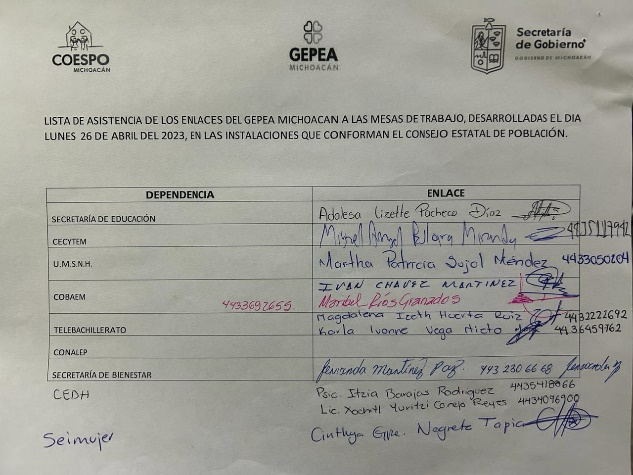 COESPO
MICHOACÁN
GEPEA
MICHOACÁN
Secretaría
de Gobierno
GOBIERNO DE MICHOACÁN
LISTA DE ASISTENCIA DE LOS ENLACES DEL GEPEA MICHOACAN A LAS MESAS DE TRABAJO, DESARROLLADAS EL DIA
LUNES 26 DE ABRIL DEL 2023, EN LAS INSTALACIONES QUE CONFORMAN EL CONSEJO ESTATAL DE POBLACIÓN.
DEPENDENCIA ENLACE
SECRETARÍA DE EDUCACIÓN Lizette Pacheco Díaz
CECYTEM Miguel Angel Miranda
U.M.S.N.H. Martha Patricia Méndez 4433050204
IVAN CHAVEZ MARTINEZ
COBAEM 4433692655 Maribel Ríos Granados
Magdalena Izeth Huerta Ruiz 4433222692
TELEBACHILLERATO Karla Ivonne Vega Nieto 4436459762
CONALEP
SECRETARÍA DE BIENESTAR Fernanda Martínez Paz. 443 230 66 68
CEDH Psic. Itzia Barajas Rodriguez
Lic. Xochitl Yunitzi Reyes 4434096900
Seimujer Cinthya Gpe. Negrete Tapia